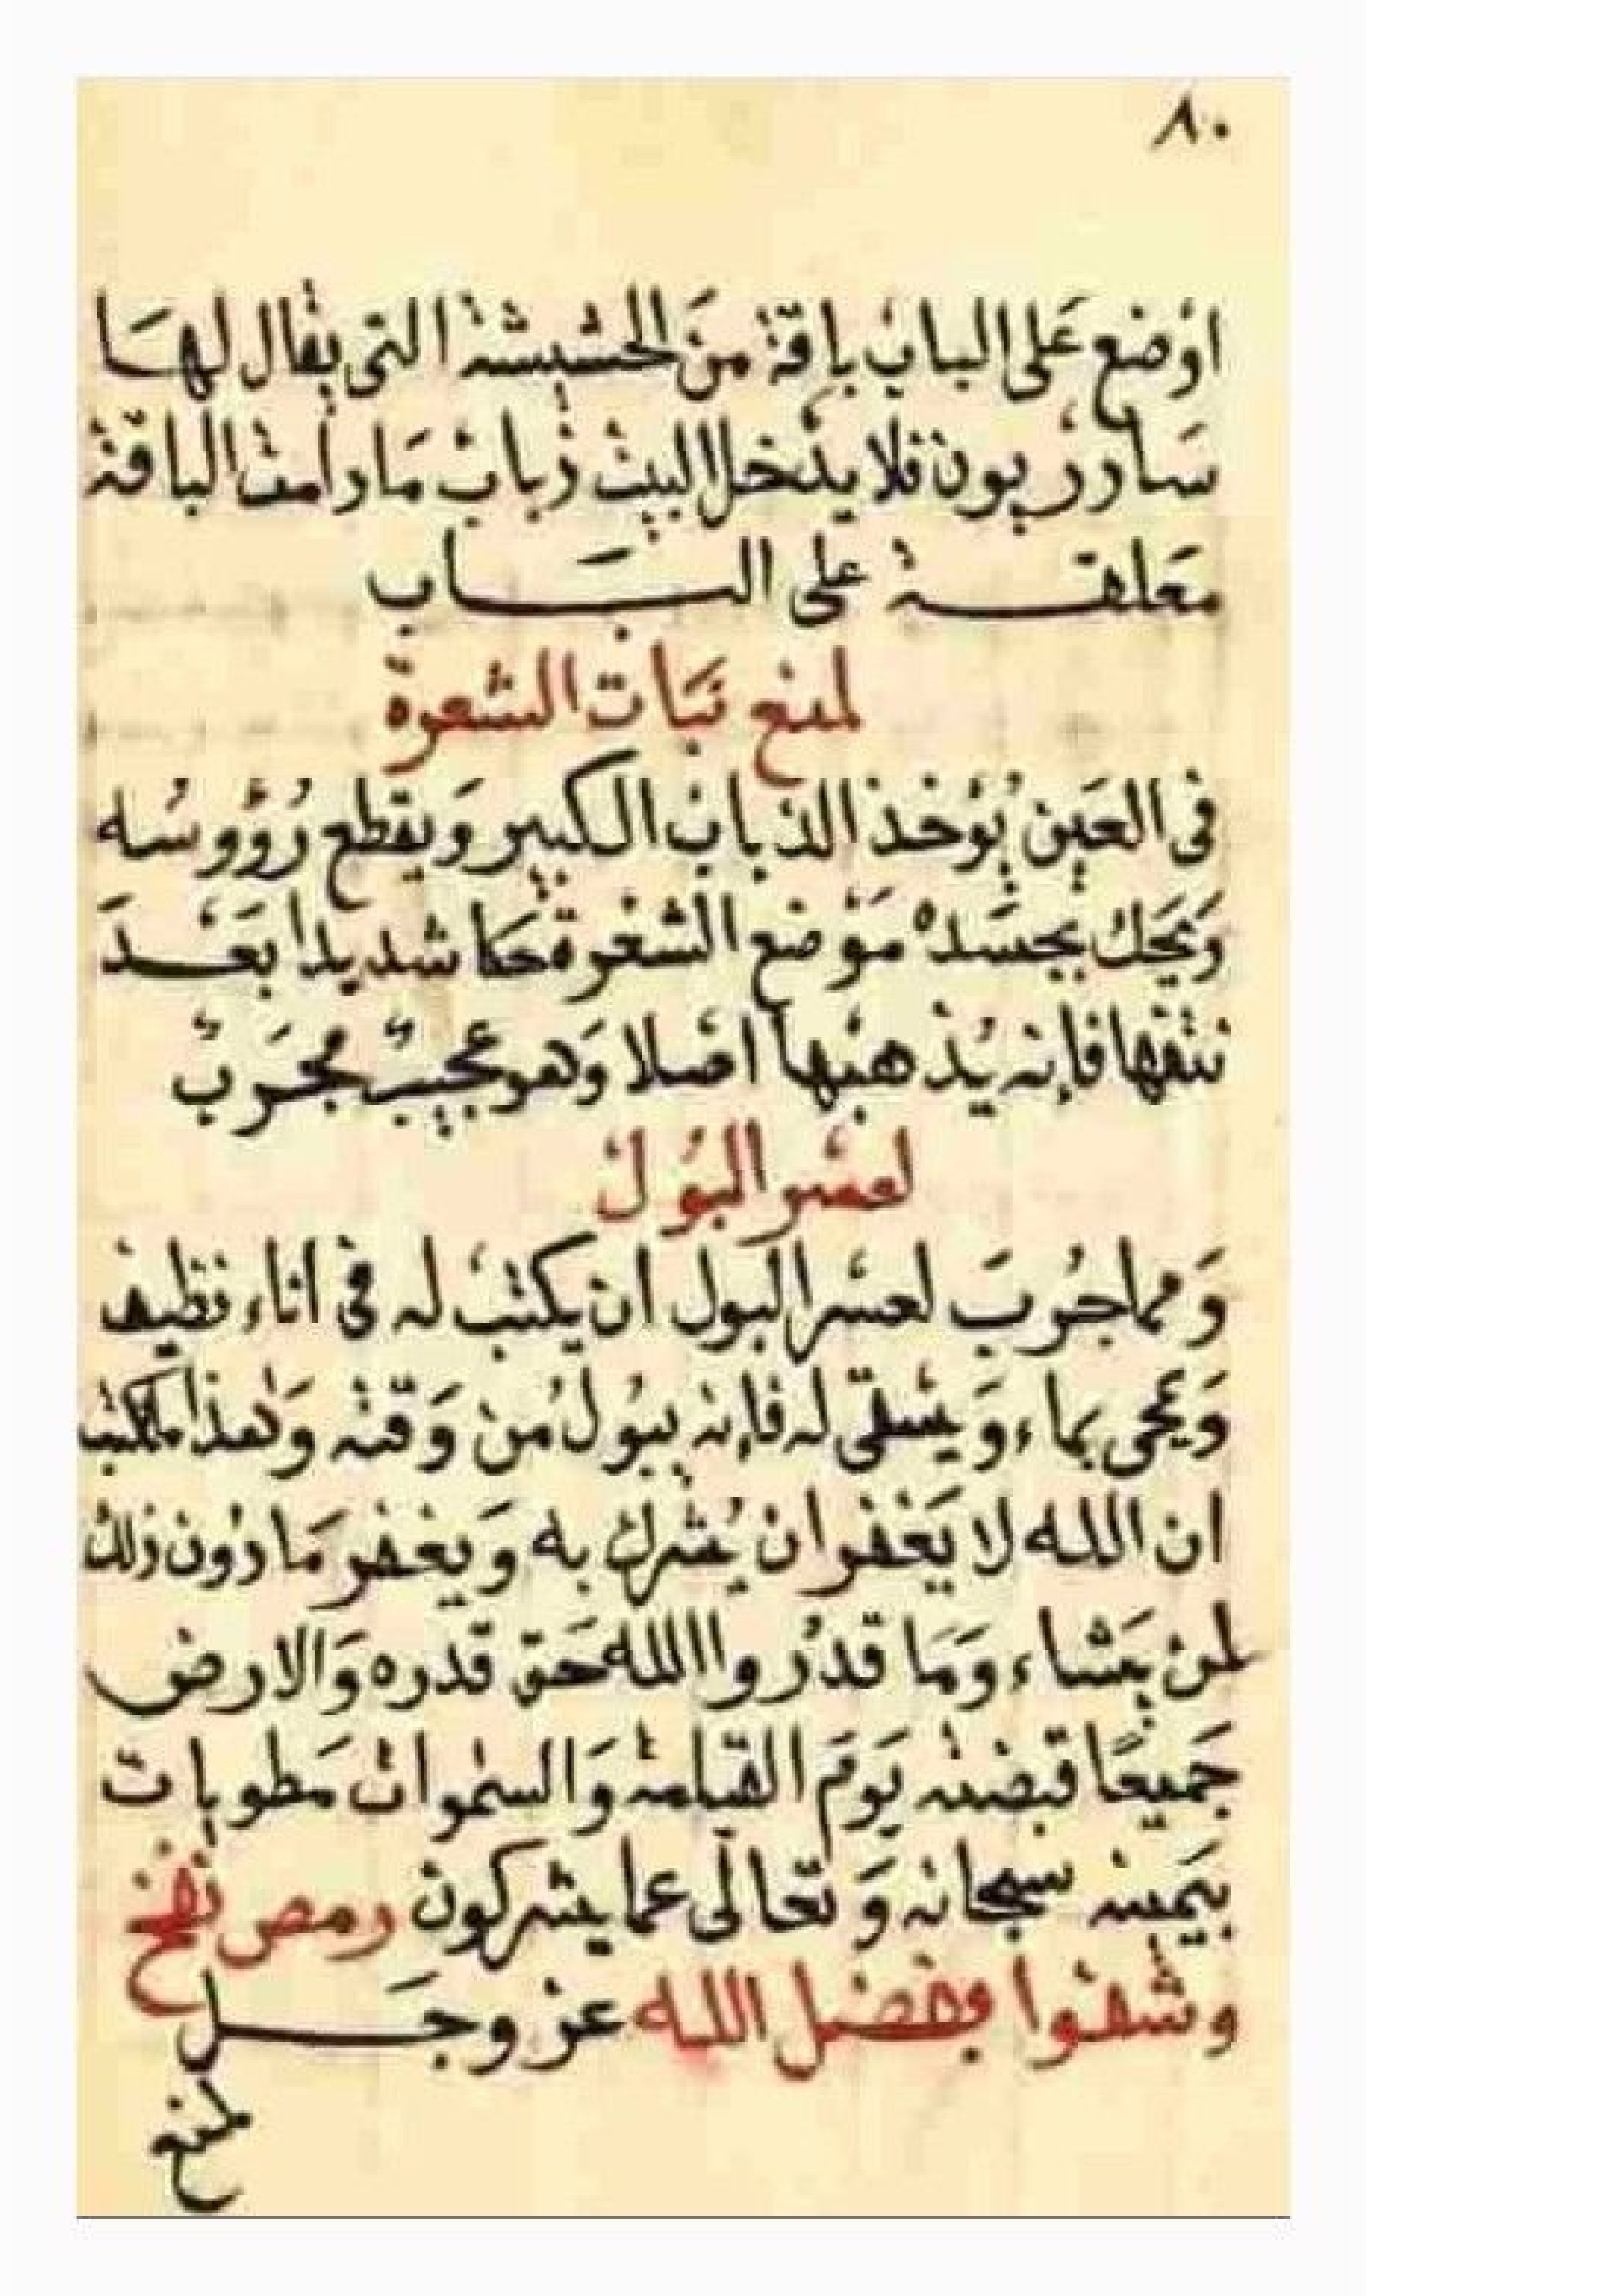 ٨٠
اوضع على الباب باقة من الحشيشة التى يقال لها
سادريون فلا يدخل البيت ذباب ما دامت الباقة
معلقة على الباب
لمنع نبات الشعرة
فى العين يُؤخذ الذباب الكبير وَيقطع رُؤوسُه
وَيحك بجسَده مَوْضع الشعْرة حكا شديدا بَعْدَ
نتفها فإنه يُذهبها اصْلا وَهو عجيبٌ مجرَبٌ
لعسْر البُول
وَمما جُربَ لعسْر البول ان يكتب له فى اناء نظيف
وَيمحى بماء وَيسْقى له فإنه يبُول من وَقته وَهذا ما يكتب
ان الله لا يَغْفر ان يُشرك به وَيغفر مَا دُون ذلك
لمن يَشاء وَمَا قدرُوا الله حَق قدره وَالارض
جَميعًا قبضته يَوَم القيٰمة وَالسمٰوات مَطويات
بيَمينه سبحانه وَ تعَالى عما يشركون ومص نفخ
وشفوا بفضل الله عز وجَل
لمنع